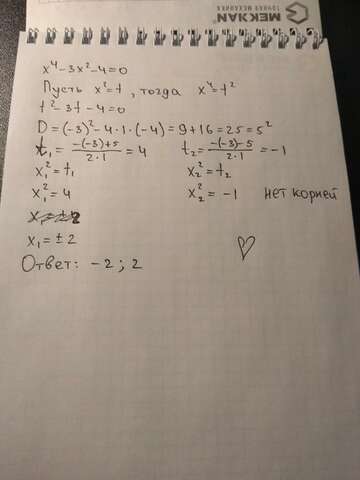 МЕКХАN
ТОЧНАЯ МЕХАНИКА
x⁴-3x²-4=0
Пусть x²=t, тогда x⁴=t²
t²-3t-4=0
D=(-3)²-4·1·(-4)=9+16=25=5²
t₁=(-(-3)+5)/(2·1)=4 t₂=(-(-3)-5)/(2·1)=-1
x₁²=t₁ x₂²=t₂
x₁²=4 x₂²=-1 нет корней
x₁=±2
Ответ: -2; 2